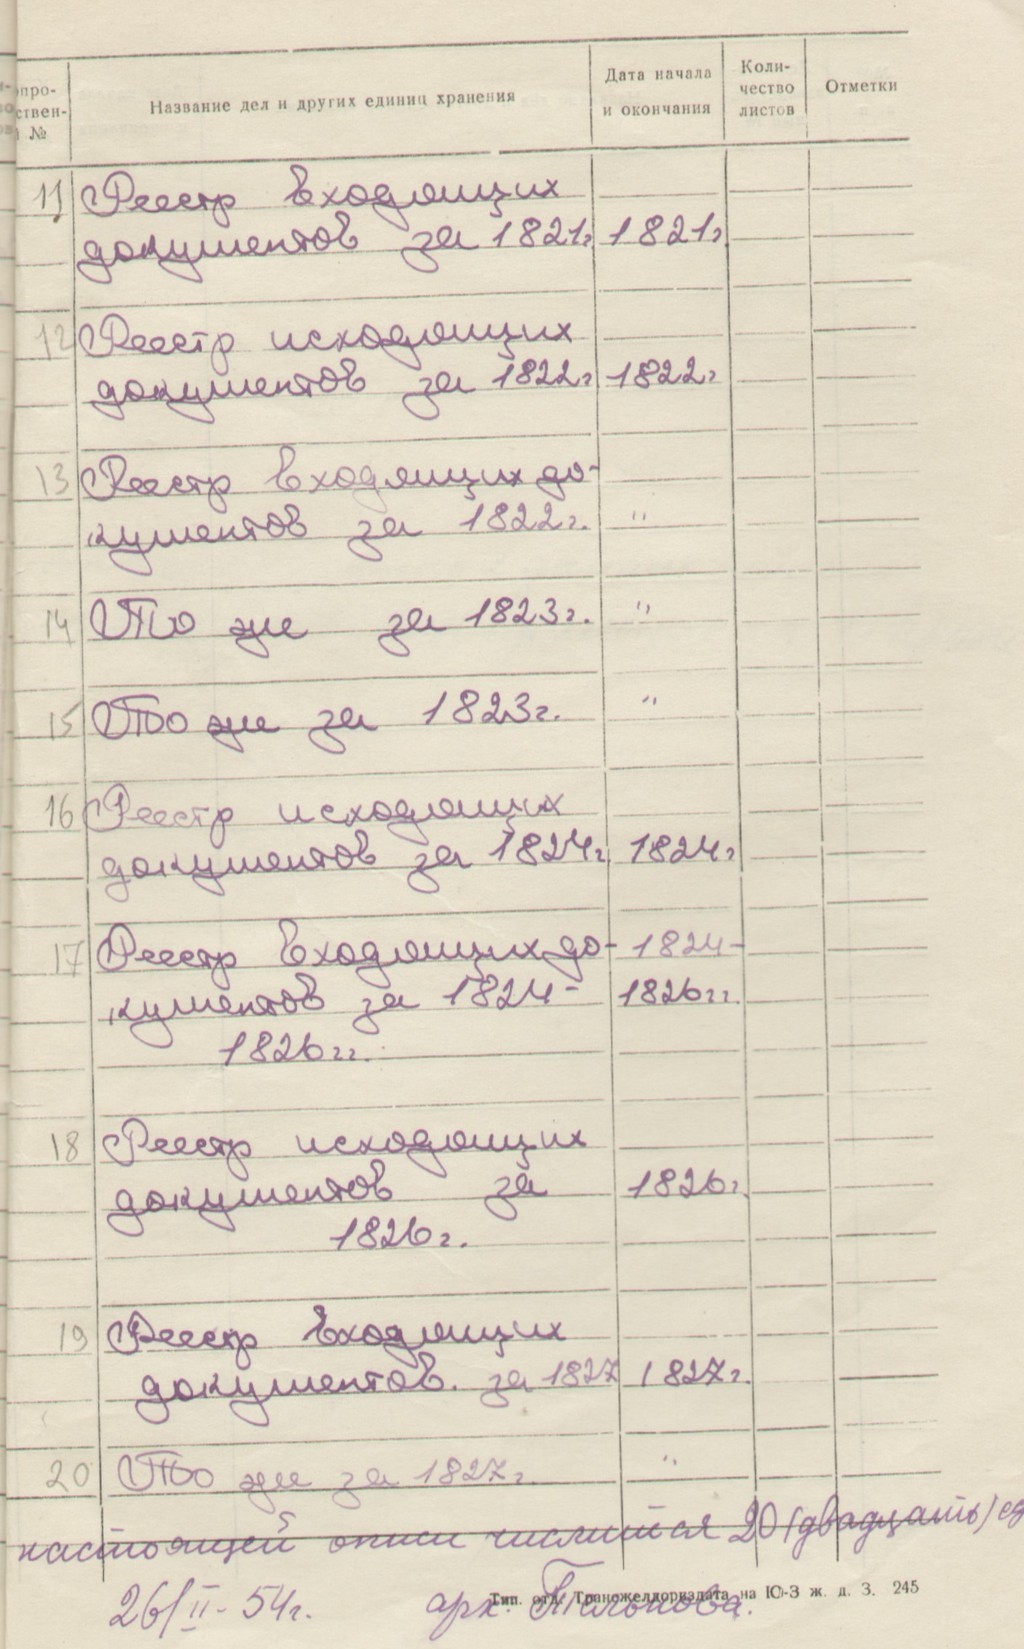 опро-
ствен-
№
Название дел и других единиц хранения
Дата начала
и окончания
Коли-
чество
листов
Отметки
11 Реестр входящих
документов за 1821г. 1821г.
12 Реестр исходящих
документов за 1822г. 1822г.
13 Реестр входящих до-
кументов за 1822г. "
14 То же за 1823г. "
15 То же за 1823г. "
16 Реестр исходящих
документов за 1824г. 1824г.
17 Реестр входящих до- 1824-
кументов за 1824- 1826гг.
1826гг.
18 Реестр исходящих
документов за 1826г.
1826г.
19 Реестр входящих
документов. за 1827 1827г.
20 То же за 1827г. "
настоящей описи числится 20 (двадцать) ед
26/II-54г. арх.
Тип. отд. Трансжелдориздата на Ю-З ж. д. З. 245